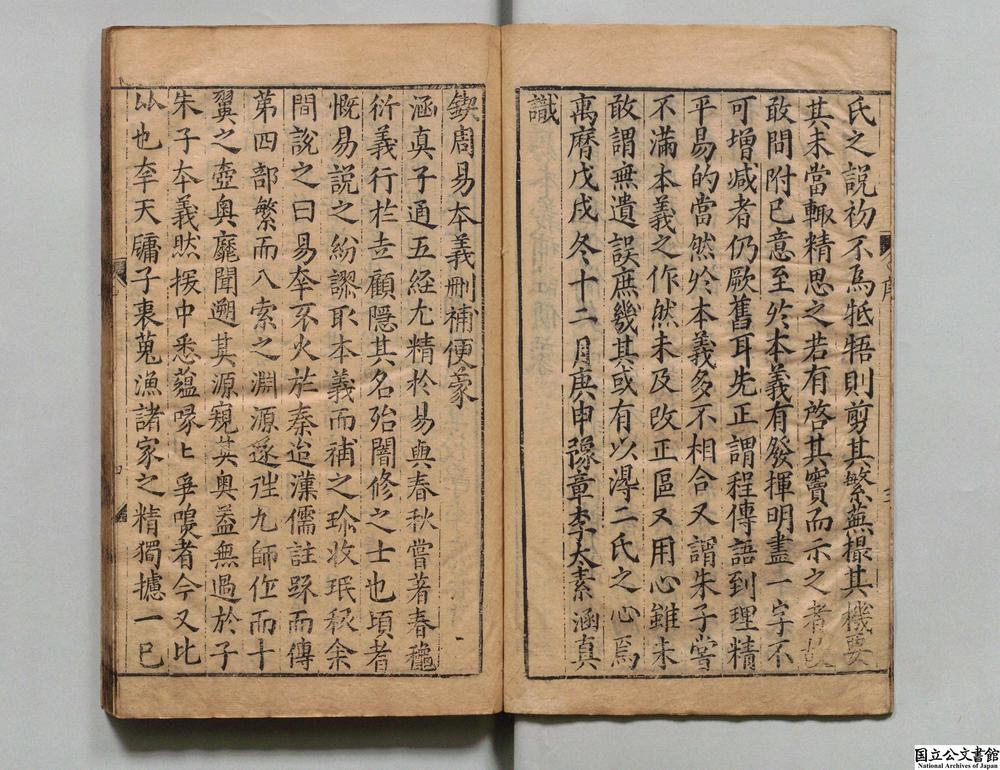 氏之說初不爲牴牾則剪其繁蕪撮其機要
其未當輙精思之若有啓其竇而示之者故
敢問附已意至扵本義有發揮明盡一字不
可增减者仍厥舊耳先正謂程傳語到理精
平易的當然扵本義多不相合又謂朱子嘗
不滿本義之作然未及改正區又用心雖未
敢謂無遺誤庶幾其或有以淂二氏之心焉
萬曆戊戌冬十二月庚申豫章李太素涵真
識
鍥周易本義刪補便蒙
涵真子通五經尤精扵易與春秋嘗著春穐
衍義行扵世顧隱其名殆闇修之士也頃者
慨易說之紛謬取本義而補之珍收珉棄余
間說之曰易夲不火扵秦迨漢儒註䟽而傳
第四部繁而八索之淵源遂徃九師作而十
翼之壼奥靡聞遡其源窺其奥葢無過於子
朱子夲義然援中悉蘊㖟〻爭喙者今又比
以也李天牗子衷蒐漁諸家之精獨攄一巳
序
國立公文書館
National Archives of Japan